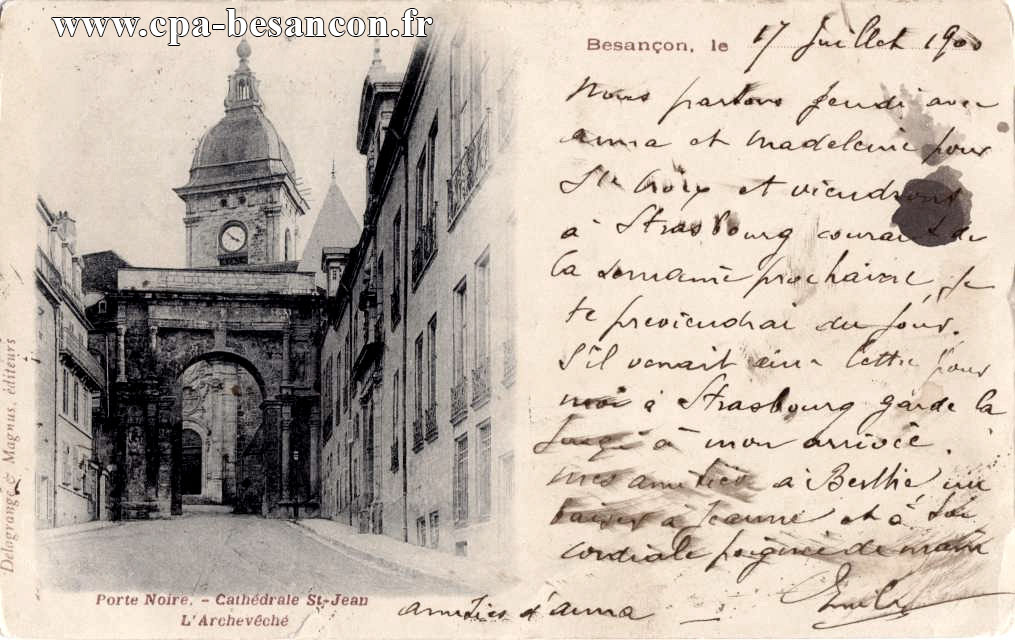 www.cpa-besancon.fr
Besançon, le 17 Juillet 1900
Nous partons Jeudi avec
Anna et Madeleine pour
Ste Croix et viendrons
à Strasbourg courant de
la semaine prochaine, je
te previendrai du jour.
S'il venait une lettre pour
moi à Strasbourg garde la
jusqu'à mon arrivée.
mes amitiés à Berthe un
baiser à Jeanne et à toi
cordiale poignée de main
Emile
amitiés d'anna
Delagrange & Magnus, éditeurs
Porte Noire. - Cathédrale St-Jean
L'Archevêché